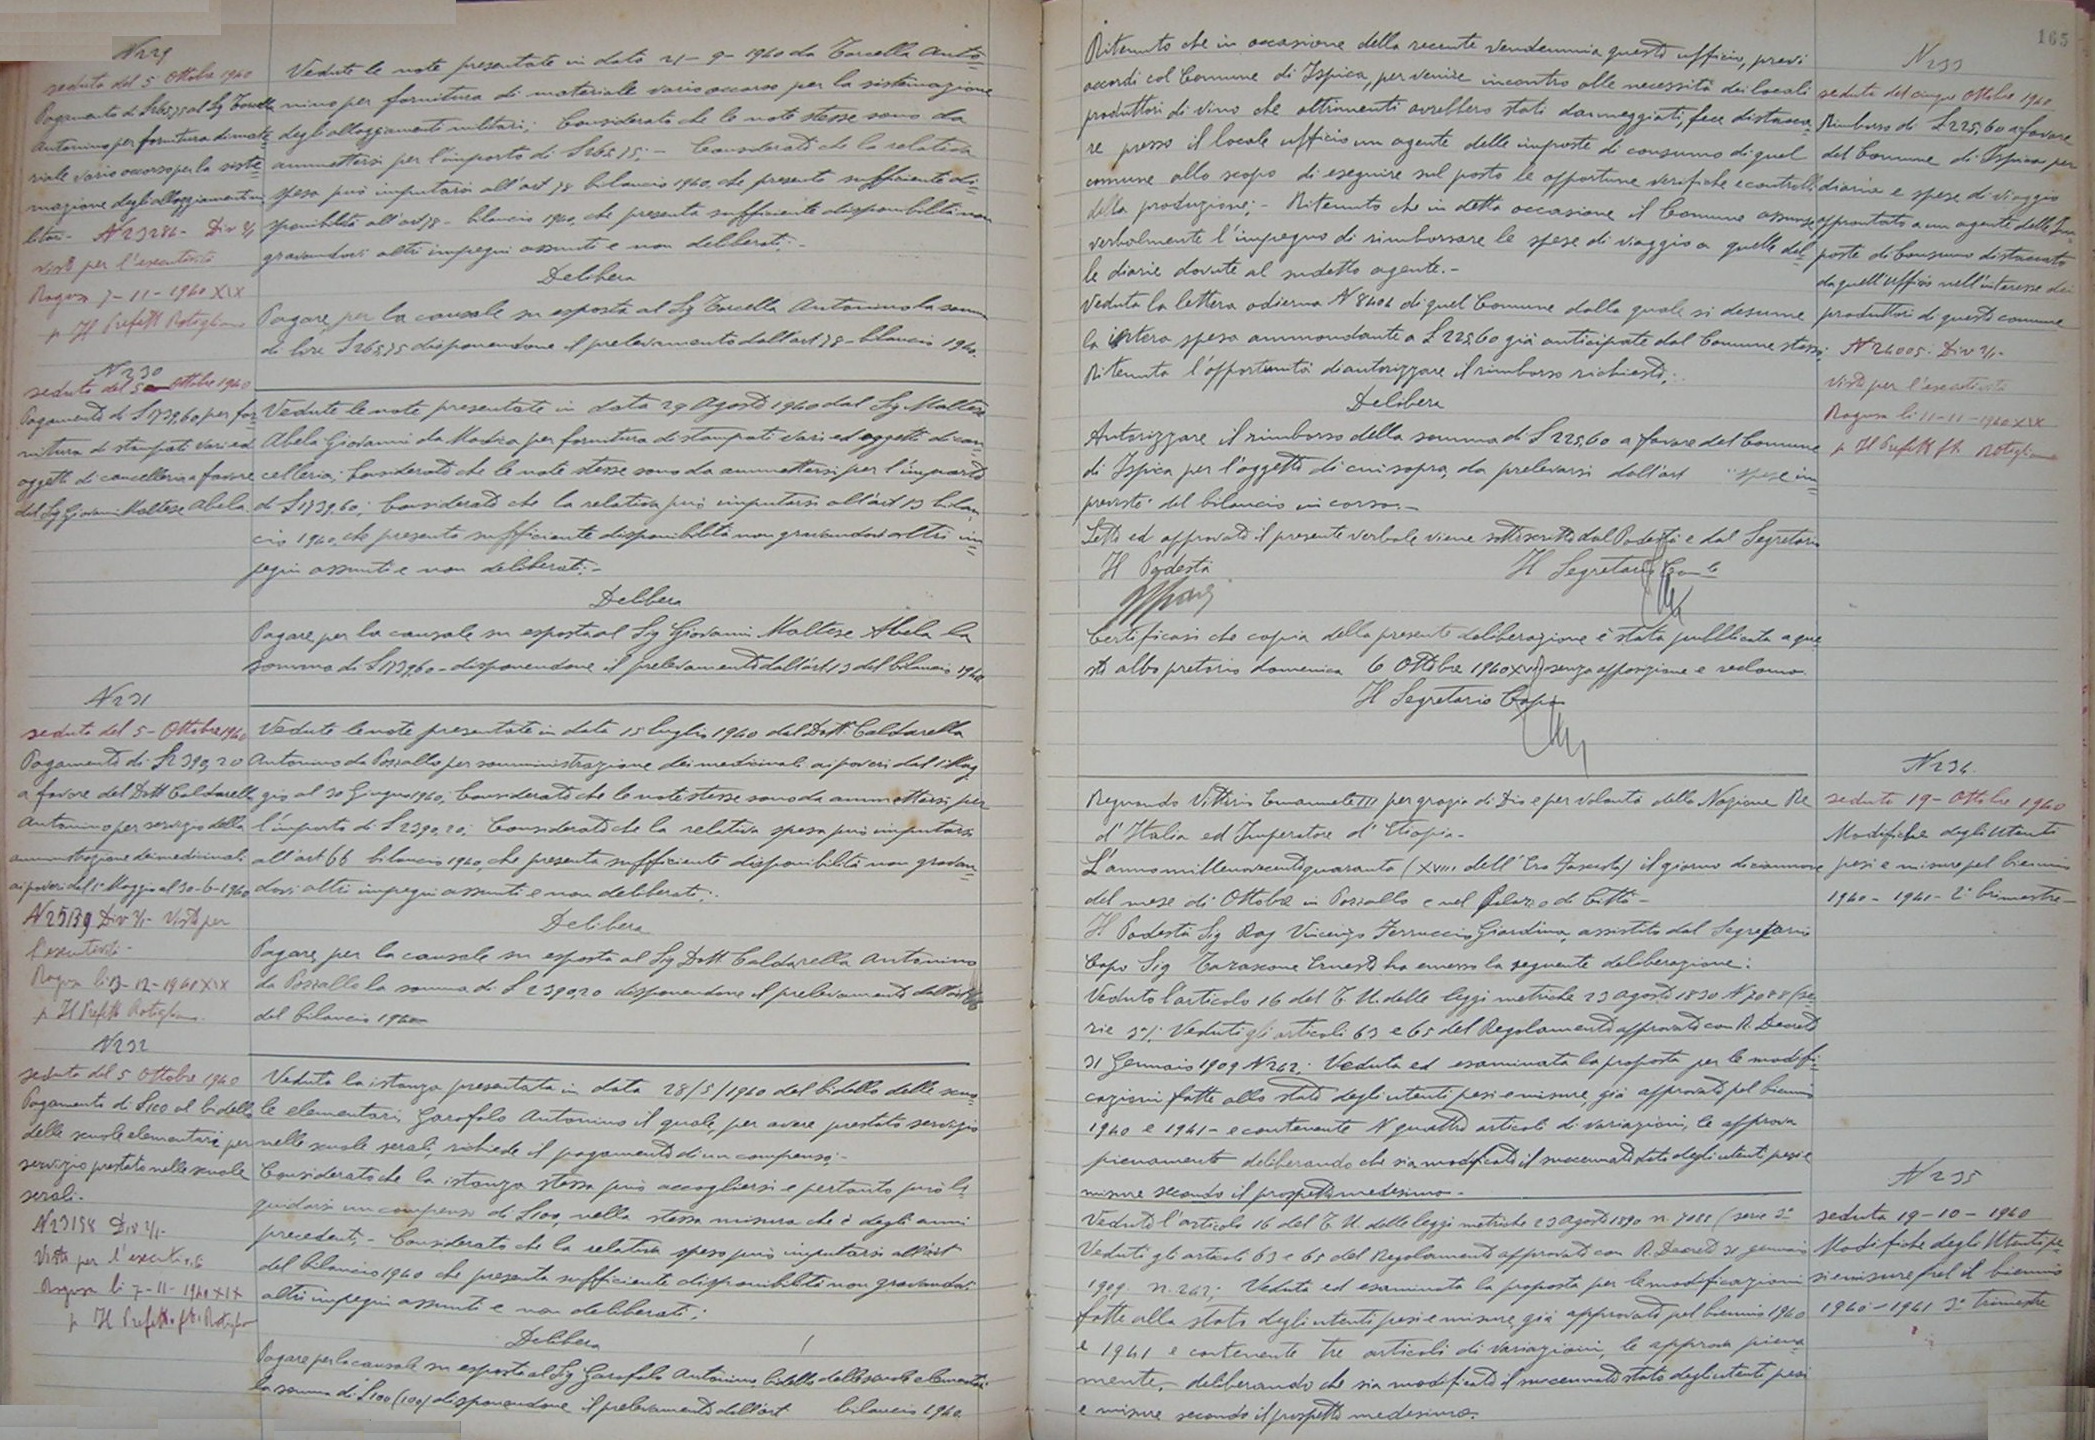 N 229
seduta del 5 Ottobre 1940
Pagamento di £ 265,75 al Sg Torcella
Antonino per fornitura di mate-
riale vario occorso per la siste-
mazione degli alloggiamenti mi-
litari - N 23286 - Div 2/1
Visto per l'esecutività
Ragusa 7-11-1940 XIX
p Il Prefetto Rotigliano
Vedute le note presentate in data 21-9-1940 da Torcella Anto-
nino per fornitura di materiale vario occorso per la sistemazione
degli alloggiamenti militari; Considerato che le note stesse sono da
ammettersi per l'importo di £ 265,75; - Considerato che la relativa
spesa può imputarsi all'art 78 bilancio 1940, che presenta sufficiente di-
sponibilità all'art 78 - bilancio 1940, che presenta sufficiente disponibilità non
gravandovi altri impegni assunti e non deliberati; -
Delibera
Pagare per la causale su esposta al Sg Torcella Antonino la somma
di lire £ 265,75 disponendone il prelevamento dall'art 78 - bilancio 1940.
N 230
seduta del 5 Ottobre 1940
Pagamento di £ 1739,60 per for-
nitura di stampati vari ed
oggetti di cancelleria a favore
del Sg Giovanni Maltese Abela.
Vedute le note presentate in data 29 Agosto 1940 dal Sg Maltese
Abela Giovanni da Modica per fornitura di stampati vari ed oggetti di can-
celleria; Considerato che le note stesse sono da ammettersi per l'importo
di £ 1739,60; Considerato che la relativa può imputarsi all'art 13 bilan-
cio 1940, che presenta sufficiente disponibilità non gravandovi altri im-
pegni assunti e non deliberati; -
Delibera
Pagare per la causale su esposta al Sg Giovanni Maltese Abela la
somma di £ 1739,60 - disponendone il prelevamento dall'art 13 del bilancio 1940
N 231
seduta del 5 - Ottobre 1940
Pagamento di £ 2390,20
a favore del Dott Caldarella
Antonino per servizio della
amministrazione dei medicinali
ai poveri dal 1° Maggio al 30-6-1940
N 25139 Div 2/1 - Visto per
l'esecutività -
Ragusa li 13-12-1940 XIX
p Il Prefetto Rotigliano.
Vedute le note presentate in data 15 luglio 1940 dal Dott. Caldarella
Antonino da Pozzallo per somministrazione dei medicinali ai poveri dal 1° Mag-
gio al 30 Giugno 1940; Considerato che le note stesse sono da ammettersi per
l'importo di £ 2390,20; Considerato che la relativa spesa può imputarsi
all'art 66 bilancio 1940, che presenta sufficiente disponibilità non gravan-
dovi altri impegni assunti e non deliberati;
Delibera
Pagare per la causale su esposta al Sg Dott. Caldarella Antonino
da Pozzallo la somma di £ 2390,20 disponendone il prelevamento dall'art 66
del bilancio 1940
N 232
seduta del 5 Ottobre 1940
Pagamento di £ 100 al bidello
delle scuole elementari per
servizio prestato nelle scuole
serali.
N 23158 Div 2/1 -
Visto per l'esecutività
Ragusa li 7-11-1940 XIX
p Il Prefetto ft. Rotigliano
Veduta la istanza presentata in data 28/5/1940 dal bidello delle scuo-
le elementari Garofalo Antonino il quale, per avere prestato servizio
nelle scuole serali, richiede il pagamento di un compenso; -
Considerato che la istanza stessa può accogliersi e pertanto può li-
quidarsi un compenso di £ 100, nella stessa misura che è degli anni
precedenti; - Considerato che la relativa spesa può imputarsi all'art
del bilancio 1940 che presenta sufficiente disponibilità non gravandovi
altri impegni assunti e non deliberati;
Delibera
Pagare per la causale su esposta al Sg Garofalo Antonino, bidello delle scuole elementari
la somma di £ 100 (100) disponendone il prelevamento dall'art bilancio 1940.
165
Ritenuto che in occasione della recente vendemmia questo ufficio, previ
accordi col Comune di Ispica, per venire incontro alle necessità dei locali
produttori di vino che altrimenti avrebbero stati danneggiati, fece distacca-
re presso il locale ufficio un agente delle imposte di consumo di quel
comune allo scopo di eseguire sul posto le opportune verifiche e controlli
della produzione; - Ritenuto che in detta occasione il Comune assunse
verbalmente l'impegno di rimborsare le spese di viaggio a quelle del-
le diarie dovute al sudetto agente. -
Veduta la lettera odierna N 8404 di quel Comune dalla quale si desume
la intera spesa ammontante a £ 225,60 già anticipate dal Comune stesso;
Ritenuta l'opportunità di autorizzare il rimborso richiesto;
Delibera
Autorizzare il rimborso della somma di £ 225,60 a favore del Comune
di Ispica per l'oggetto di cui sopra, da prelevarsi dall'art "spese im-
previste" del bilancio in corso. -
Letto ed approvato il presente verbale viene sottoscritto dal Podestà e dal Segretario
Il Podestà Il Segretario Com.le
Certificasi che copia della presente deliberazione è stata pubblicata a que-
sto albo pretorio domenica 6 Ottobre 1940 XVIII senza opposizione e reclamo.
Il Segretario Capo
N 233
seduta del cinque Ottobre 1940
Rimborso di £ 225,60 a favore
del Comune di Ispica per
diarie e spese di viaggio
approntate a un agente delle Im-
poste di Consumo distaccato
da quell'ufficio nell'interesse dei
produttori di questo comune
N 24005 Div 2/1 -
Visto per l'esecutività
Ragusa li 11-11-1940 XIX
p Il Prefetto ft Rotigliano
N 234.
seduta 19 - Ottobre 1940
Modifiche degli utenti
pesi e misure pel biennio
1940 - 1941 - 2° bimestre -
Regnando Vittorio Emanuele III per grazia di Dio e per volontà della Nazione Re
d'Italia ed Imperatore d'Etiopia -
L'anno millenovecentoquaranta (XVIII dell'Era Fascista) il giorno diciannove
del mese di Ottobre in Pozzallo e nel Palazzo di Città -
Il Podestà Sig Rag Vincenzo Ferruccio Giardina, assistito dal Segretario
Capo Sig Tarascone Ernesto ha emesso la seguente deliberazione:
Veduto l'articolo 16 del T. U. delle leggi metriche 23 agosto 1890 N 7088 (se-
rie 3°); Veduti gli articoli 63 e 65 del Regolamento approvato con R. Decreto
31 Gennaio 1909 N 242; Veduta ed esaminata la proposta per le modifi-
cazioni fatte allo stato degli utenti pesi e misure, già approvato pel biennio
1940 e 1941 - e contenente N quattro articoli di variazioni, le approva
pienamente deliberando che sia modificato il succennato stato degli utenti pesi e
misure secondo il prospetto medesimo. -
N 235
seduta 19-10-1940
Modifiche degli Utenti pe-
si e misure pel il biennio
1940 - 1941 3° trimestre
Veduto l'articolo 16 del T. U. delle leggi metriche 23 agosto 1890 n. 7088 (serie 3°
Veduti gli articoli 63 e 65 del Regolamento approvato con R. Decreto 31 gennaio
1909 n. 242; Veduta ed esaminata la proposta per le modificazioni
fatte alla stato degli utenti pesi e misure, già approvato pel biennio 1940
e 1941 e contenente tre articoli di variazioni, le approva piena-
mente, - deliberando che sia modificato il succennato stato degli utenti pesi
e misure secondo il prospetto medesimo.